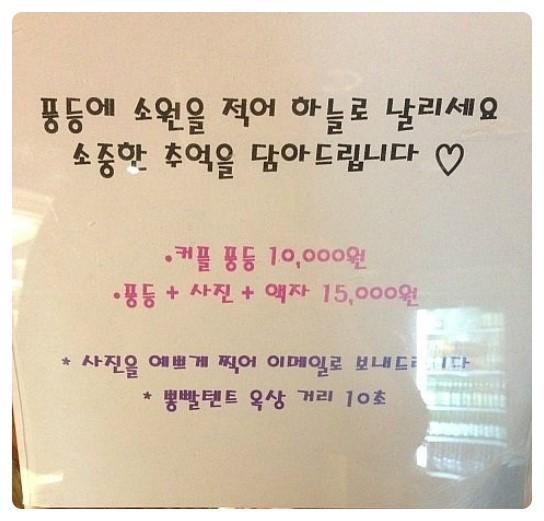 풍등에 소원을 적어 하늘로 날리세요
소중한 추억을 담아드립니다 ♡
•커플 풍등 10,000원
•풍등 + 사진 + 액자 15,000원
* 사진을 예쁘게 찍어 이메일로 보내드립니다
* 뽕빨텐트 옥상 거리 10초